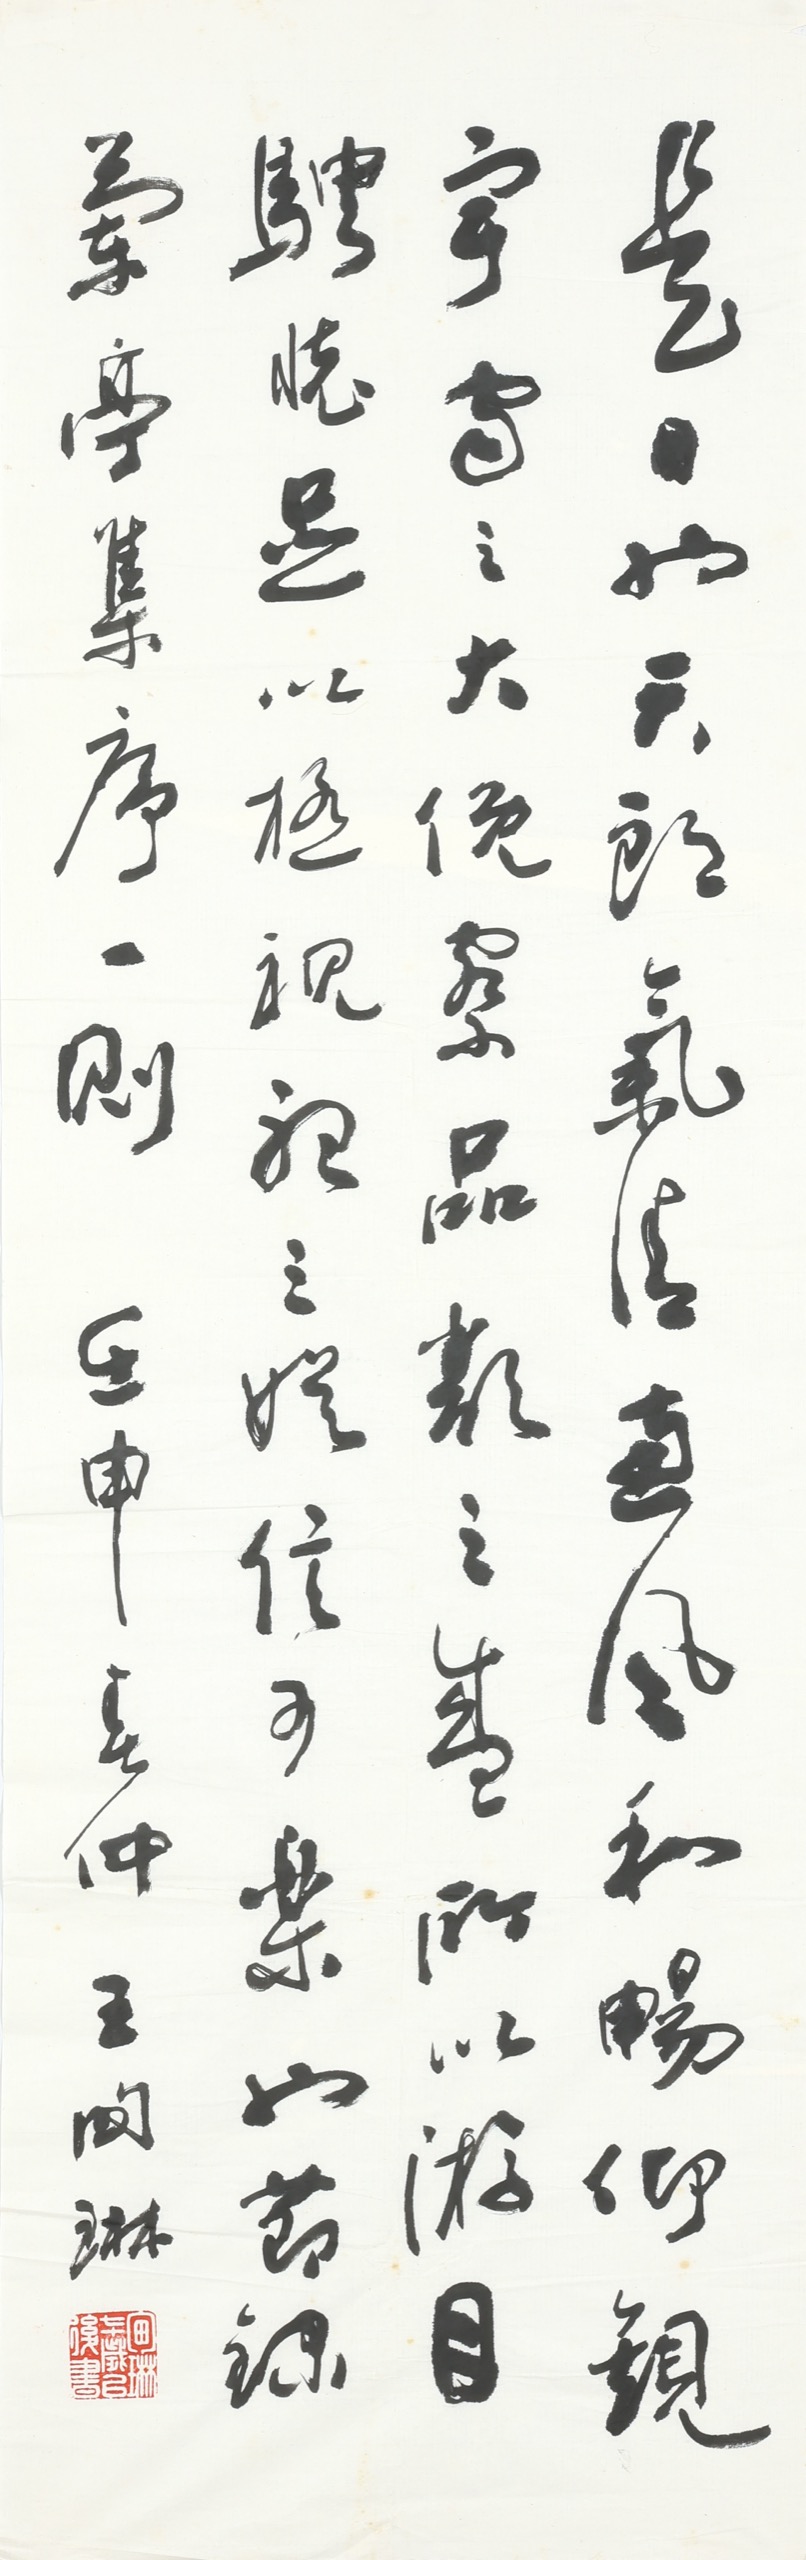 是日也天朗氣清惠風和暢仰觀
宇宙之大俛察品類之盛所以游目
騁懷足以極視聽之娛信可樂也節錄
蘭亭集序一則 壬申春仲 王甸琳
甸琳
後書